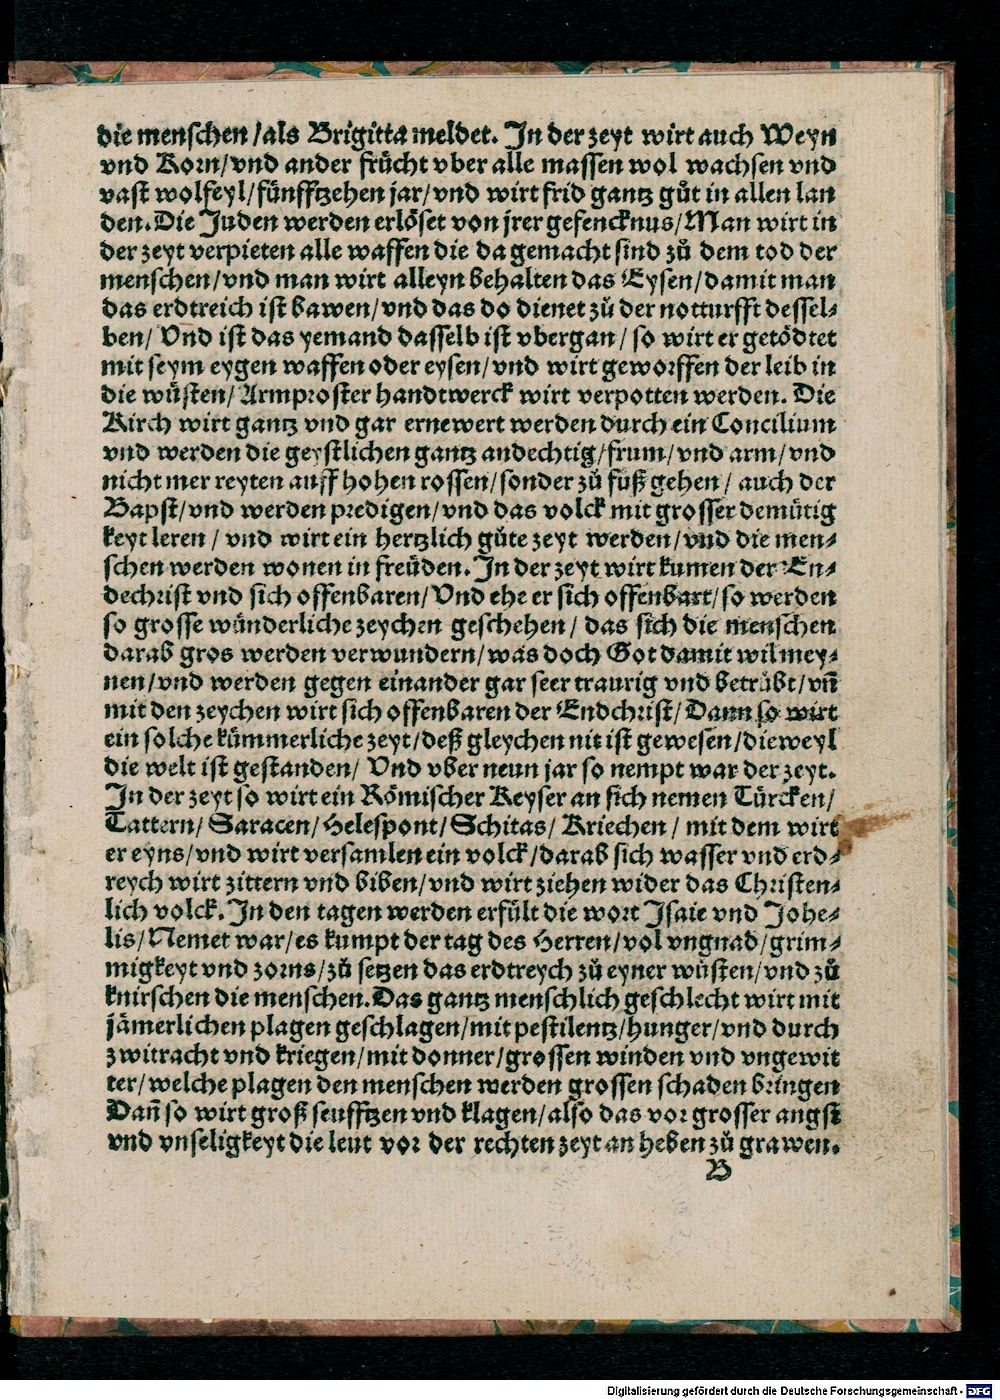 die menschen/als Brigitta meldet. In der zeyt wirt auch Weyn
vnd Korn/vnd ander frücht vber alle massen wol wachsen vnd
vast wolfeyl/fünfftzehen jar/vnd wirt frid gantz gůt in allen lan
den. Die Juden werden erlöset von jrer gefencknus/Man wirt in
der zeyt verpieten alle waffen die da gemacht sind zů dem tod der
menschen/vnd man wirt alleyn behalten das Eysen/damit man
das erdtreich ist bawen/vnd das do dienet zů der notturfft dessel-
ben/ Vnd ist das yemand dasselb ist vbergan/so wirt er getödtet
mit seym eygen waffen oder eysen/vnd wirt geworffen der leib in
die wüsten/Armproster handtwerck wirt verpotten werden. Die
Kirch wirt gantz vnd gar ernewert werden durch ein Concilium
vnd werden die geystlichen gantz andechtig/frum/vnd arm/vnd
nicht mer reyten auff hohen rossen/sonder zů fůß gehen/ auch der
Bapst/vnd werden predigen/vnd das volck mit grosser demütig
keyt leren/ vnd wirt ein hertzlich gůte zeyt werden/vnd die men-
schen werden wonen in freüden. In der zeyt wirt kumen der En-
dechrist vnd sich offenbaren/Vnd ehe er sich offenbart/so werden
so grosse wünderliche zeychen geschehen/ das sich die menschen
darab gros werden verwundern/was doch Got damit wil mey-
nen/vnd werden gegen einander gar seer traurig vnd betrübt/vñ
mit den zeychen wirt sich offenbaren der Endchrist/Dann so wirt
ein solche kümmerliche zeyt/deß gleychen nit ist gewesen/dieweyl
die welt ist gestanden/ Vnd vber neun jar so nempt war der zeyt.
In der zeyt so wirt ein Römischer Keyser an sich nemen Türcken/
Tattern/Saracen/Helespont/Schitas/Kriechen/ mit dem wirt
er eyns/vnd wirt versamlen ein volck/darab sich wasser vnd erd-
reych wirt zittern vnd biben/vnd wirt ziehen wider das Christen-
lich volck. In den tagen werden erfült die wort Isaie vnd Johe-
lis/Nemet war/es kumpt der tag des Herren/vol vngnad/grim-
migkeyt vnd zorns/zů setzen das erdtreych zů eyner wüsten/vnd zů
knirschen die menschen. Das gantz menschlich geschlecht wirt mit
jämerlichen plagen geschlagen/mit pestilentz/hunger/vnd durch
zwitracht vnd kriegen/mit donner/grossen winden vnd vngewit
ter/welche plagen den menschen werden grossen schaden bringen
Dañ so wirt groß seufftzen vnd klagen/also das vor grosser angst
vnd vnseligkeyt die leut vor der rechten zeyt an heben zů grawen.
B
Digitalisierung gefördert durch die Deutsche Forschungsgemeinschaft - DFG